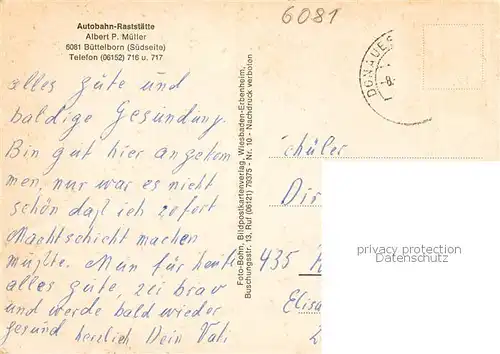 Autobahn-Raststätte
Albert P. Müller
6081 Büttelborn (Südseite)
Telefon (06152) 716 u. 717
6081
DONAUES
-8.
alles gute und
baldige Gesundung.
Bin gut hier angekom
men, nur war es nicht
schön daß ich sofort
Nachtschicht machen
müßte. Nun für heute
alles gute, sei brav
und werde bald wieder
gesund herzlich Dein Vati
Foto-Bohn, Bildpostkartenverlag, Wiesbaden-Erbenheim,
Buschungsstr. 13, Ruf (06121) 79375 - Nr. 10 - Nachdruck verboten
Schüler
Dir
435
Elisa
privacy protection
DATENSCHUTZ